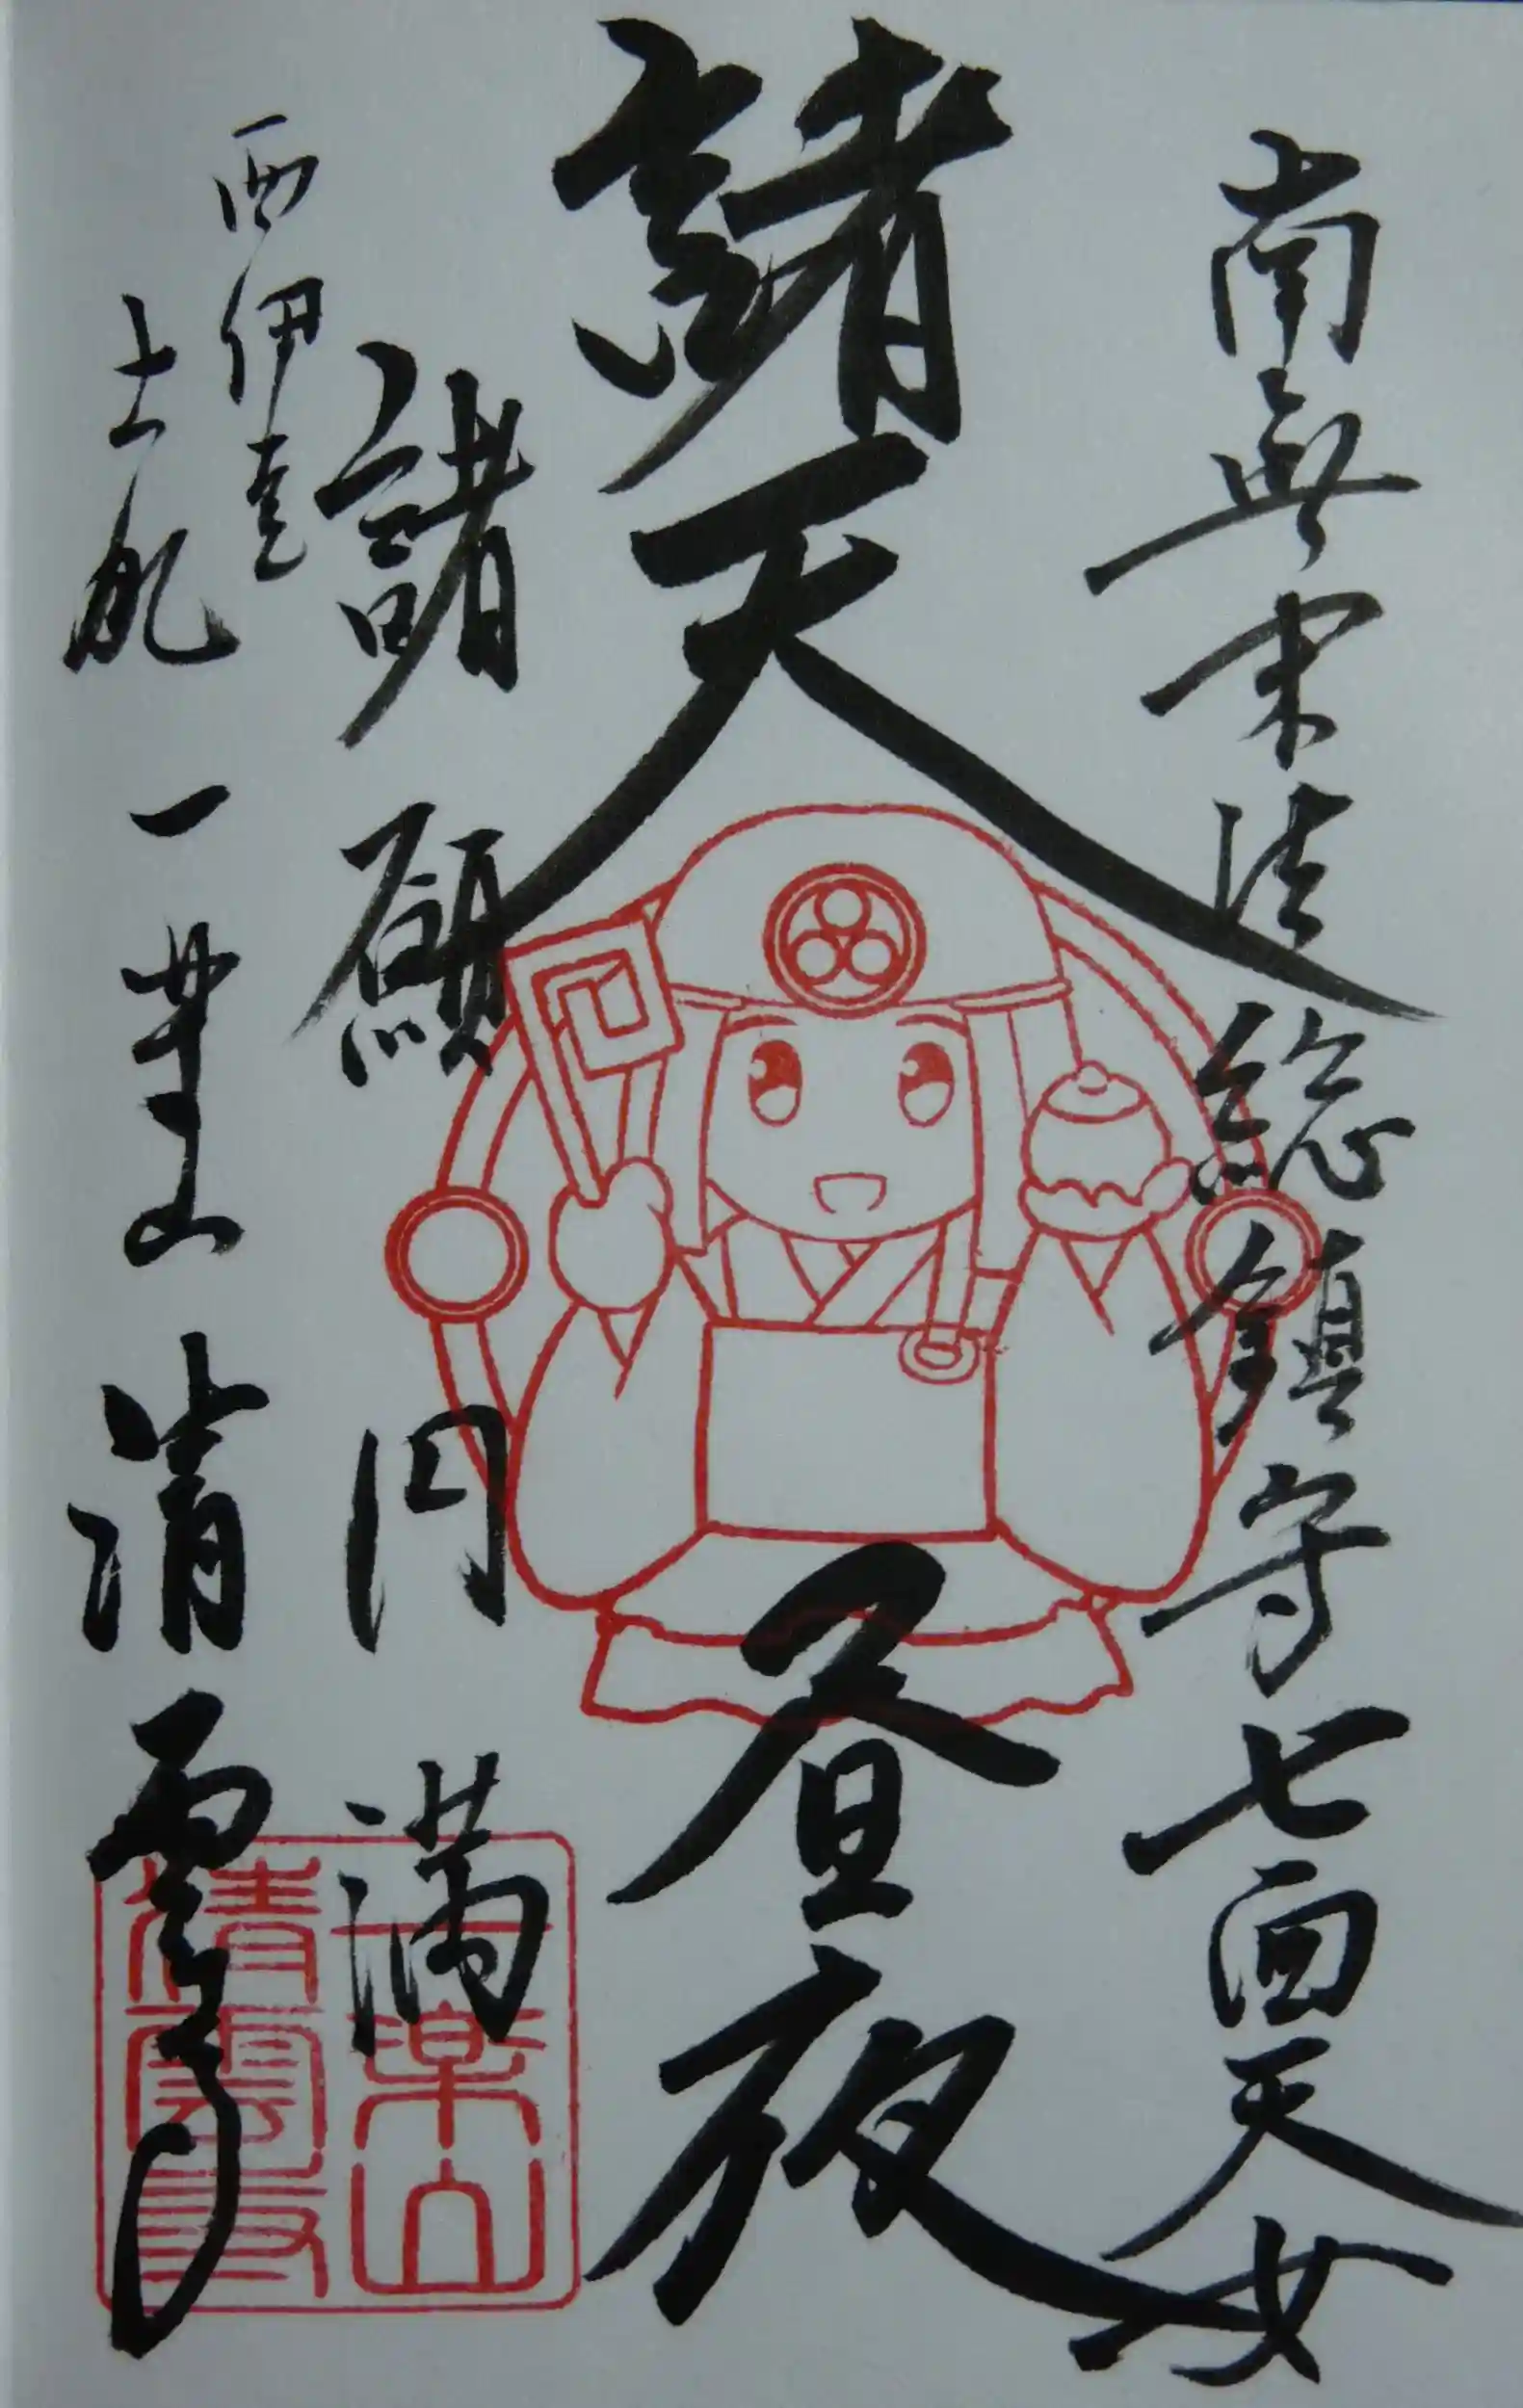 南無末法総鎮守七面天女
諸天昼夜
諸願円満
西伊豆
土肥 一乗山 清雲寺
一乗山
清雲寺